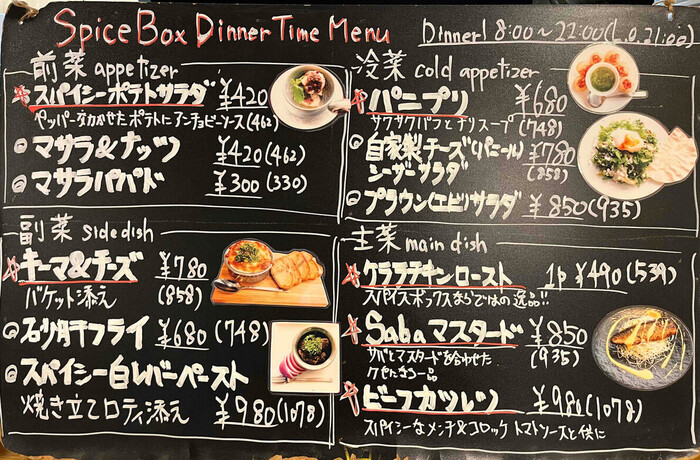 Spice Box Dinner Time Menu
Dinner! 8:00〜22:00(L.O.21:00)
前菜 appetizer
スパイシーポテトサラダ ¥420
ペッパーをきかせたポテトにアンチョビーソース(462)
マサラ&ナッツ ¥420(462)
マサラパパド ¥300(330)
副菜 side dish
キーマ&チーズ ¥780
バケット添え (858)
砂肝フライ ¥680(748)
スパイシー白レバーペースト
焼き立てロティ添え ¥980(1078)
冷菜 cold appetizer
パニプリ ¥680
サクサクパフとチリスープ(748)
自家製チーズ(パニール) ¥780
シーザーサラダ (858)
プラウン(エビ)サラダ ¥850(935)
主菜 main dish
ケララチキンロースト 1p ¥490(539)
スパイスボックスならではの逸品!!
Sabaマスタード ¥850
サバとマスタードを合わせた (935)
クセになる一品
ビーフカツレツ ¥980(1078)
スパイシーなメンチ&コロッケ トマトソースと供に